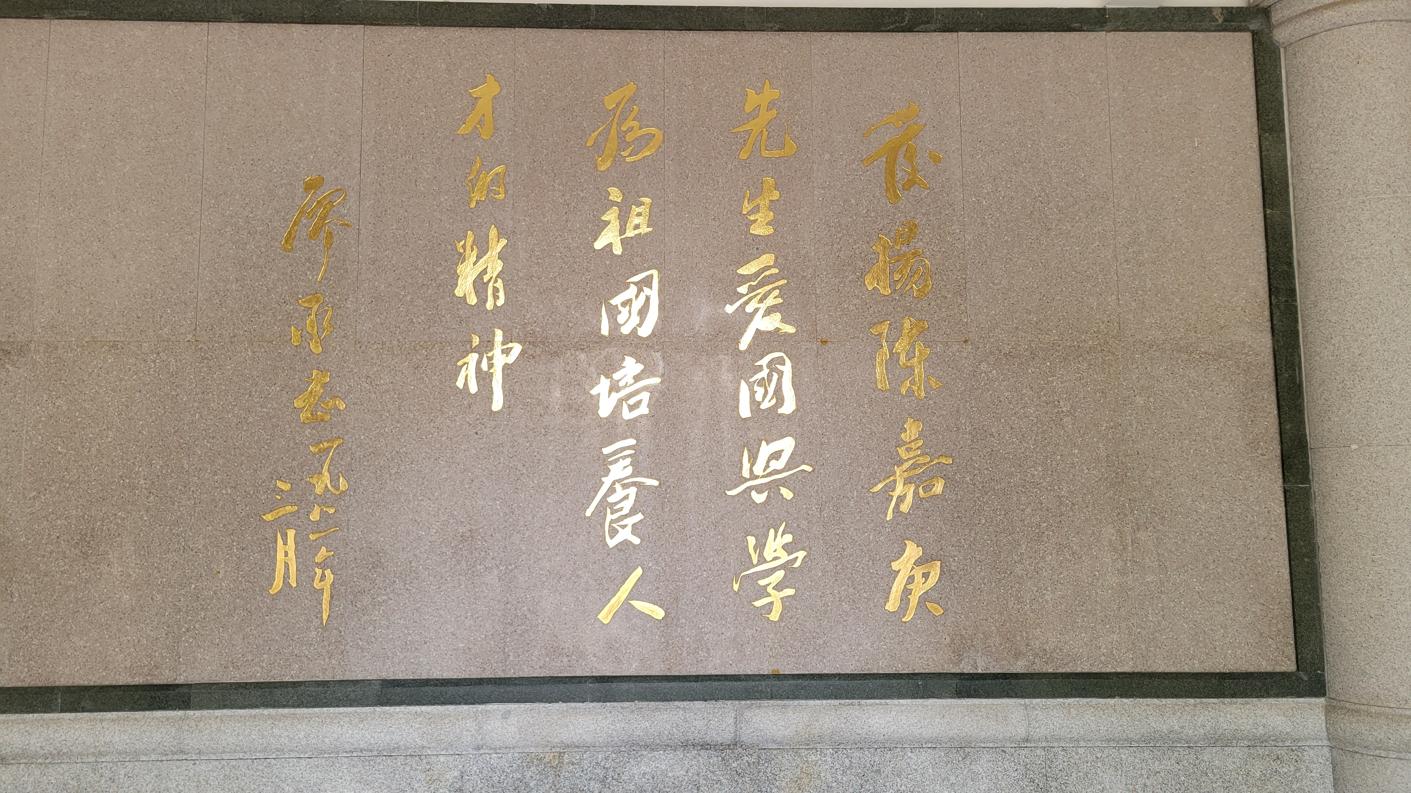 发揚陈嘉庚
先生爱國兴學
为祖國培養人
才的精神
廖承志一九八一年
三月